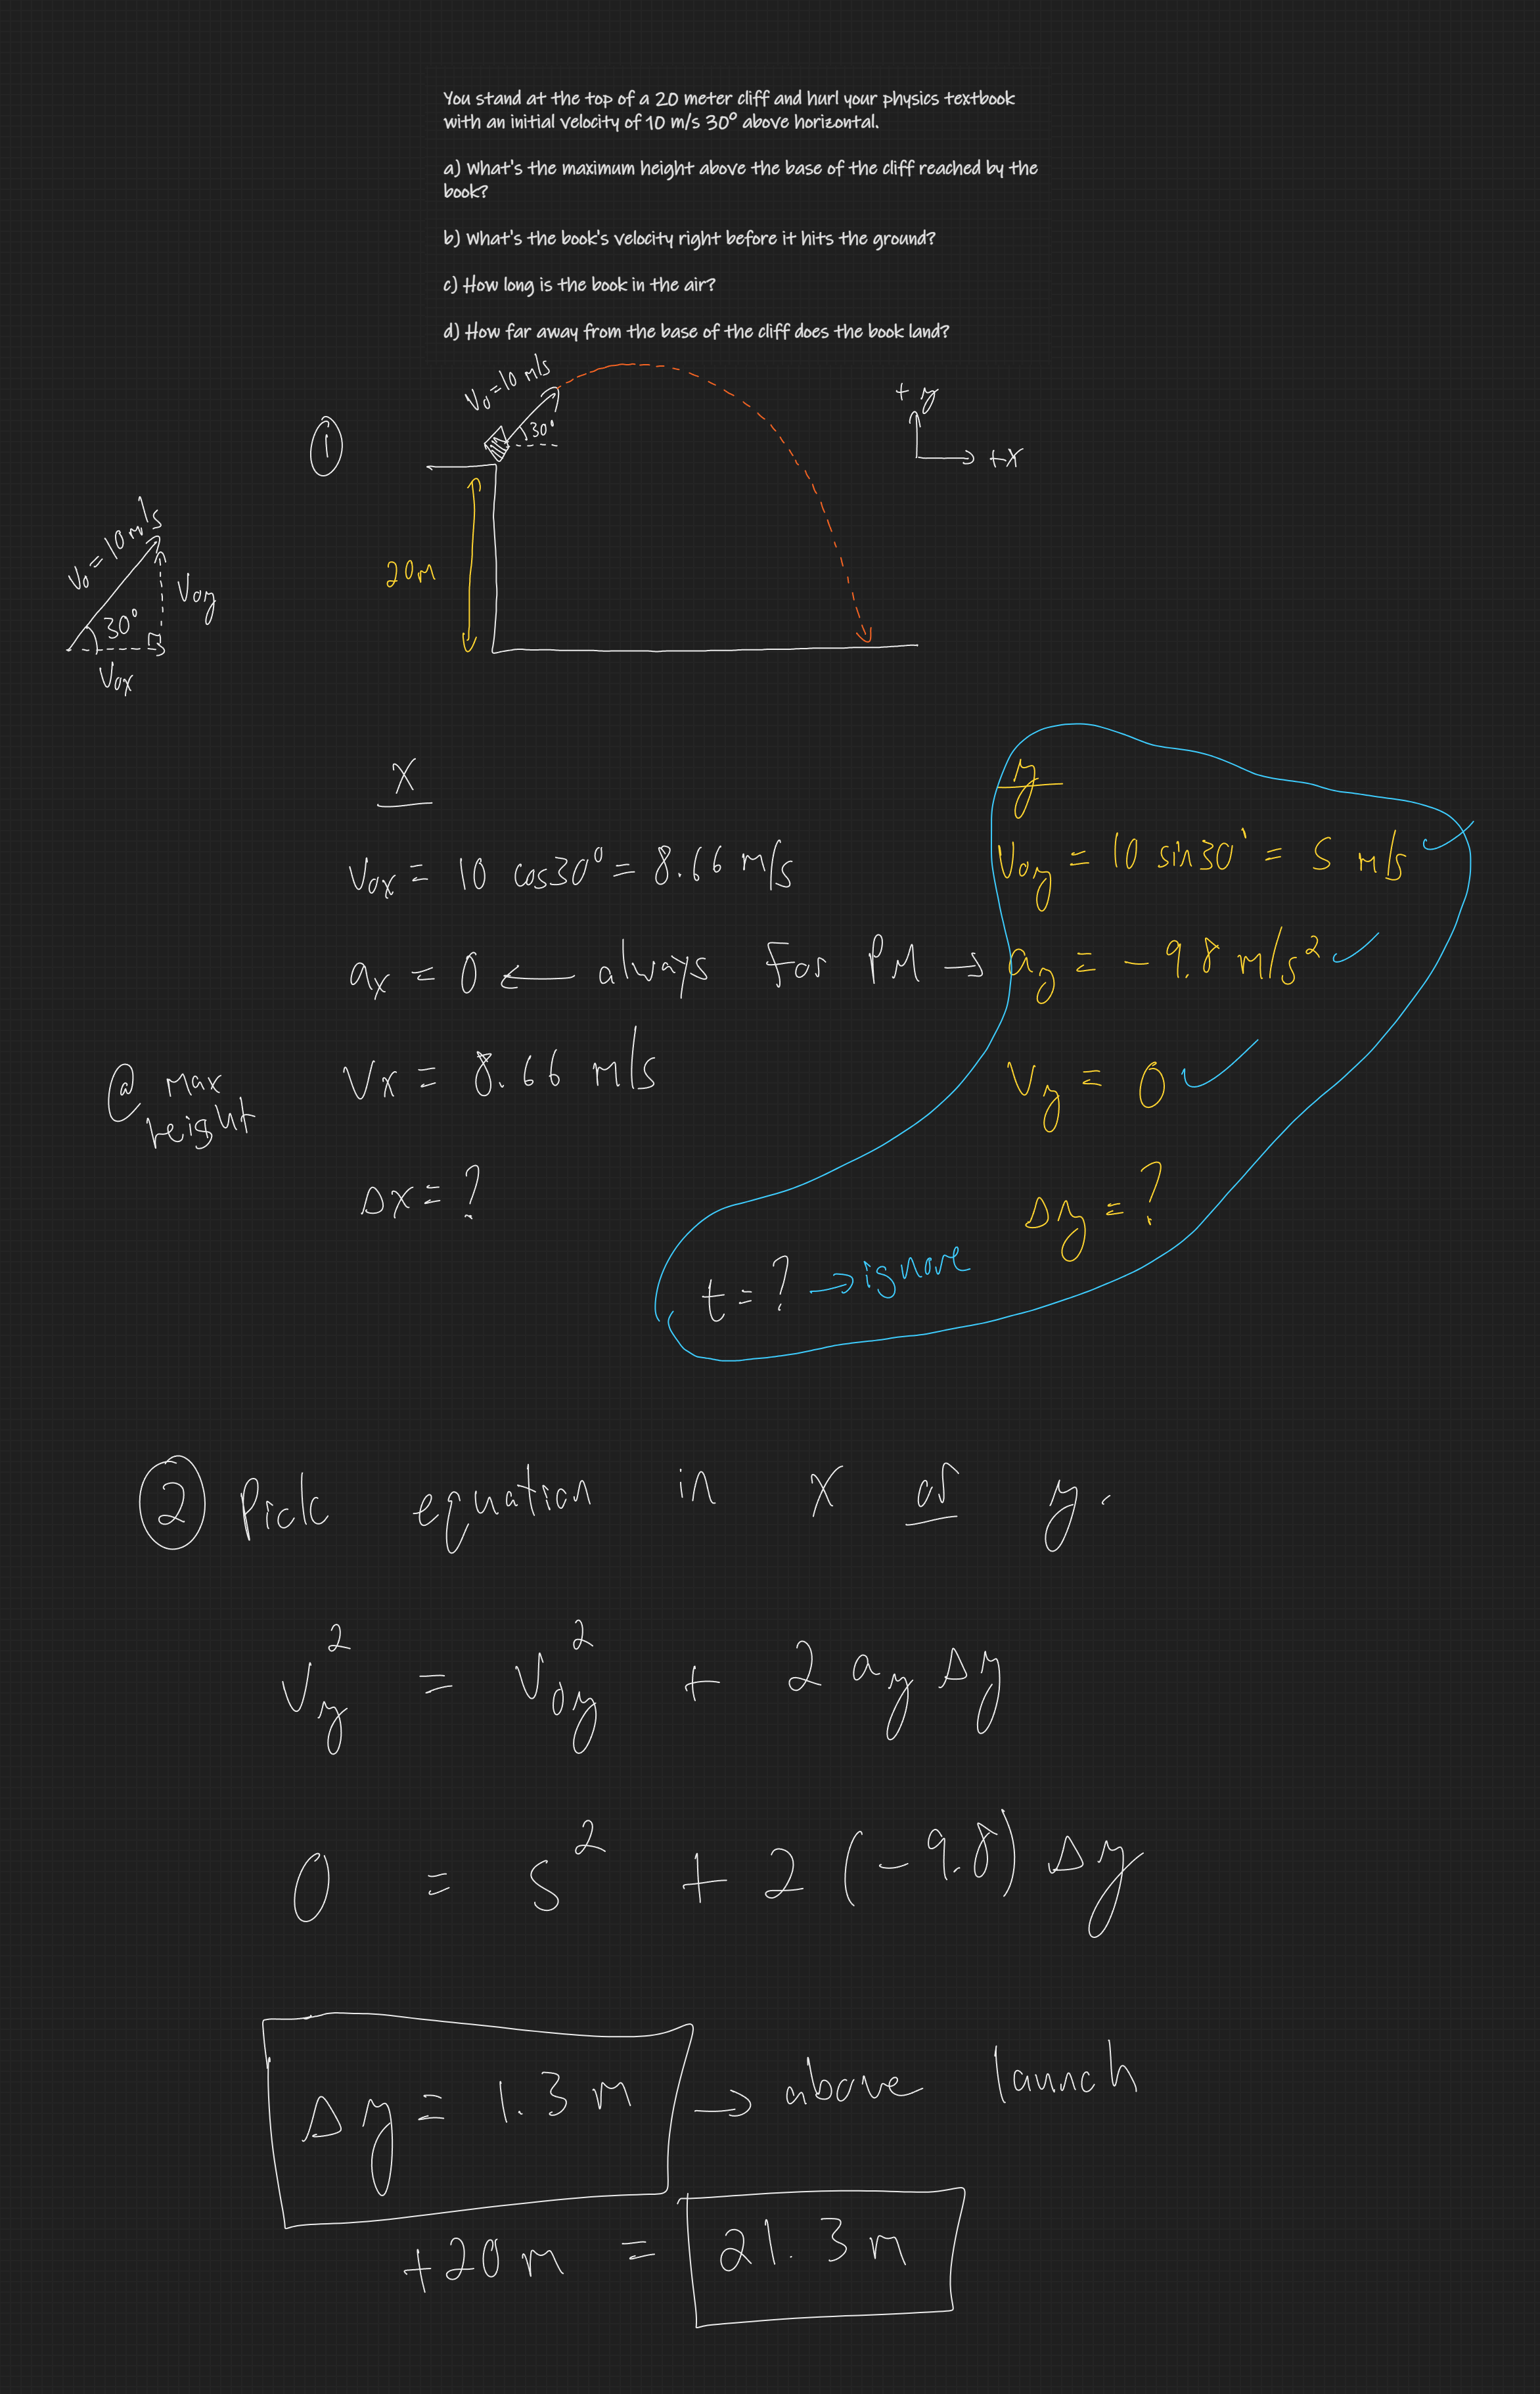 You stand at the top of a 20 meter cliff and hurl your physics textbook
with an initial velocity of 10 m/s 30° above horizontal.
a) What's the maximum height above the base of the cliff reached by the
book?
b) What's the book's velocity right before it hits the ground?
c) How long is the book in the air?
d) How far away from the base of the cliff does the book land?
① V₀=10 m/s
30°
+y
+x
20m
V₀=10 m/s
30°
V₀y
V₀x
x
y
V₀x = 10 cos30° = 8.66 m/s
V₀y = 10 sin30° = 5 m/s ✓
ax = 0 ← always for PM → ay = -9.8 m/s² ✓
@ max height
Vx = 8.66 m/s
Vy = 0 ✓
Δx = ?
Δy = ?
t = ? → ignore
② Pick equation in x or y.
Vy² = V₀y² + 2 ay Δy
0 = 5² + 2 (-9.8) Δy
Δy = 1.3 m → above launch
+20 m = 21.3 m